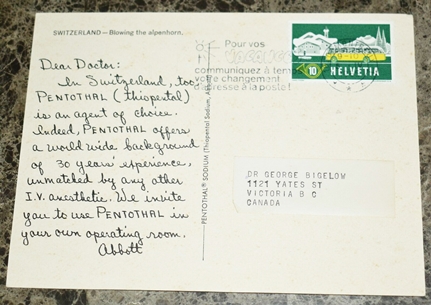 SWITZERLAND — Blowing the alpenhorn.
Dear Doctor:
In Switzerland, too,
PENTOTHAL (thiopental)
is an agent of choice.
Indeed, PENTOTHAL offers
a world wide background
of 30 years' experience,
unmatched by any other
I.V. anesthetic. We invite
you to use PENTOTHAL in
your own operating room.
Abbott
PENTOTHAL® SODIUM (Thiopental Sodium, Abbott)
Pour vos
VACANCES
communiquez à temps
votre changement
d'adresse à la poste!
10
HELVETIA
DR GEORGE BIGELOW
1121 YATES ST
VICTORIA B C
CANADA